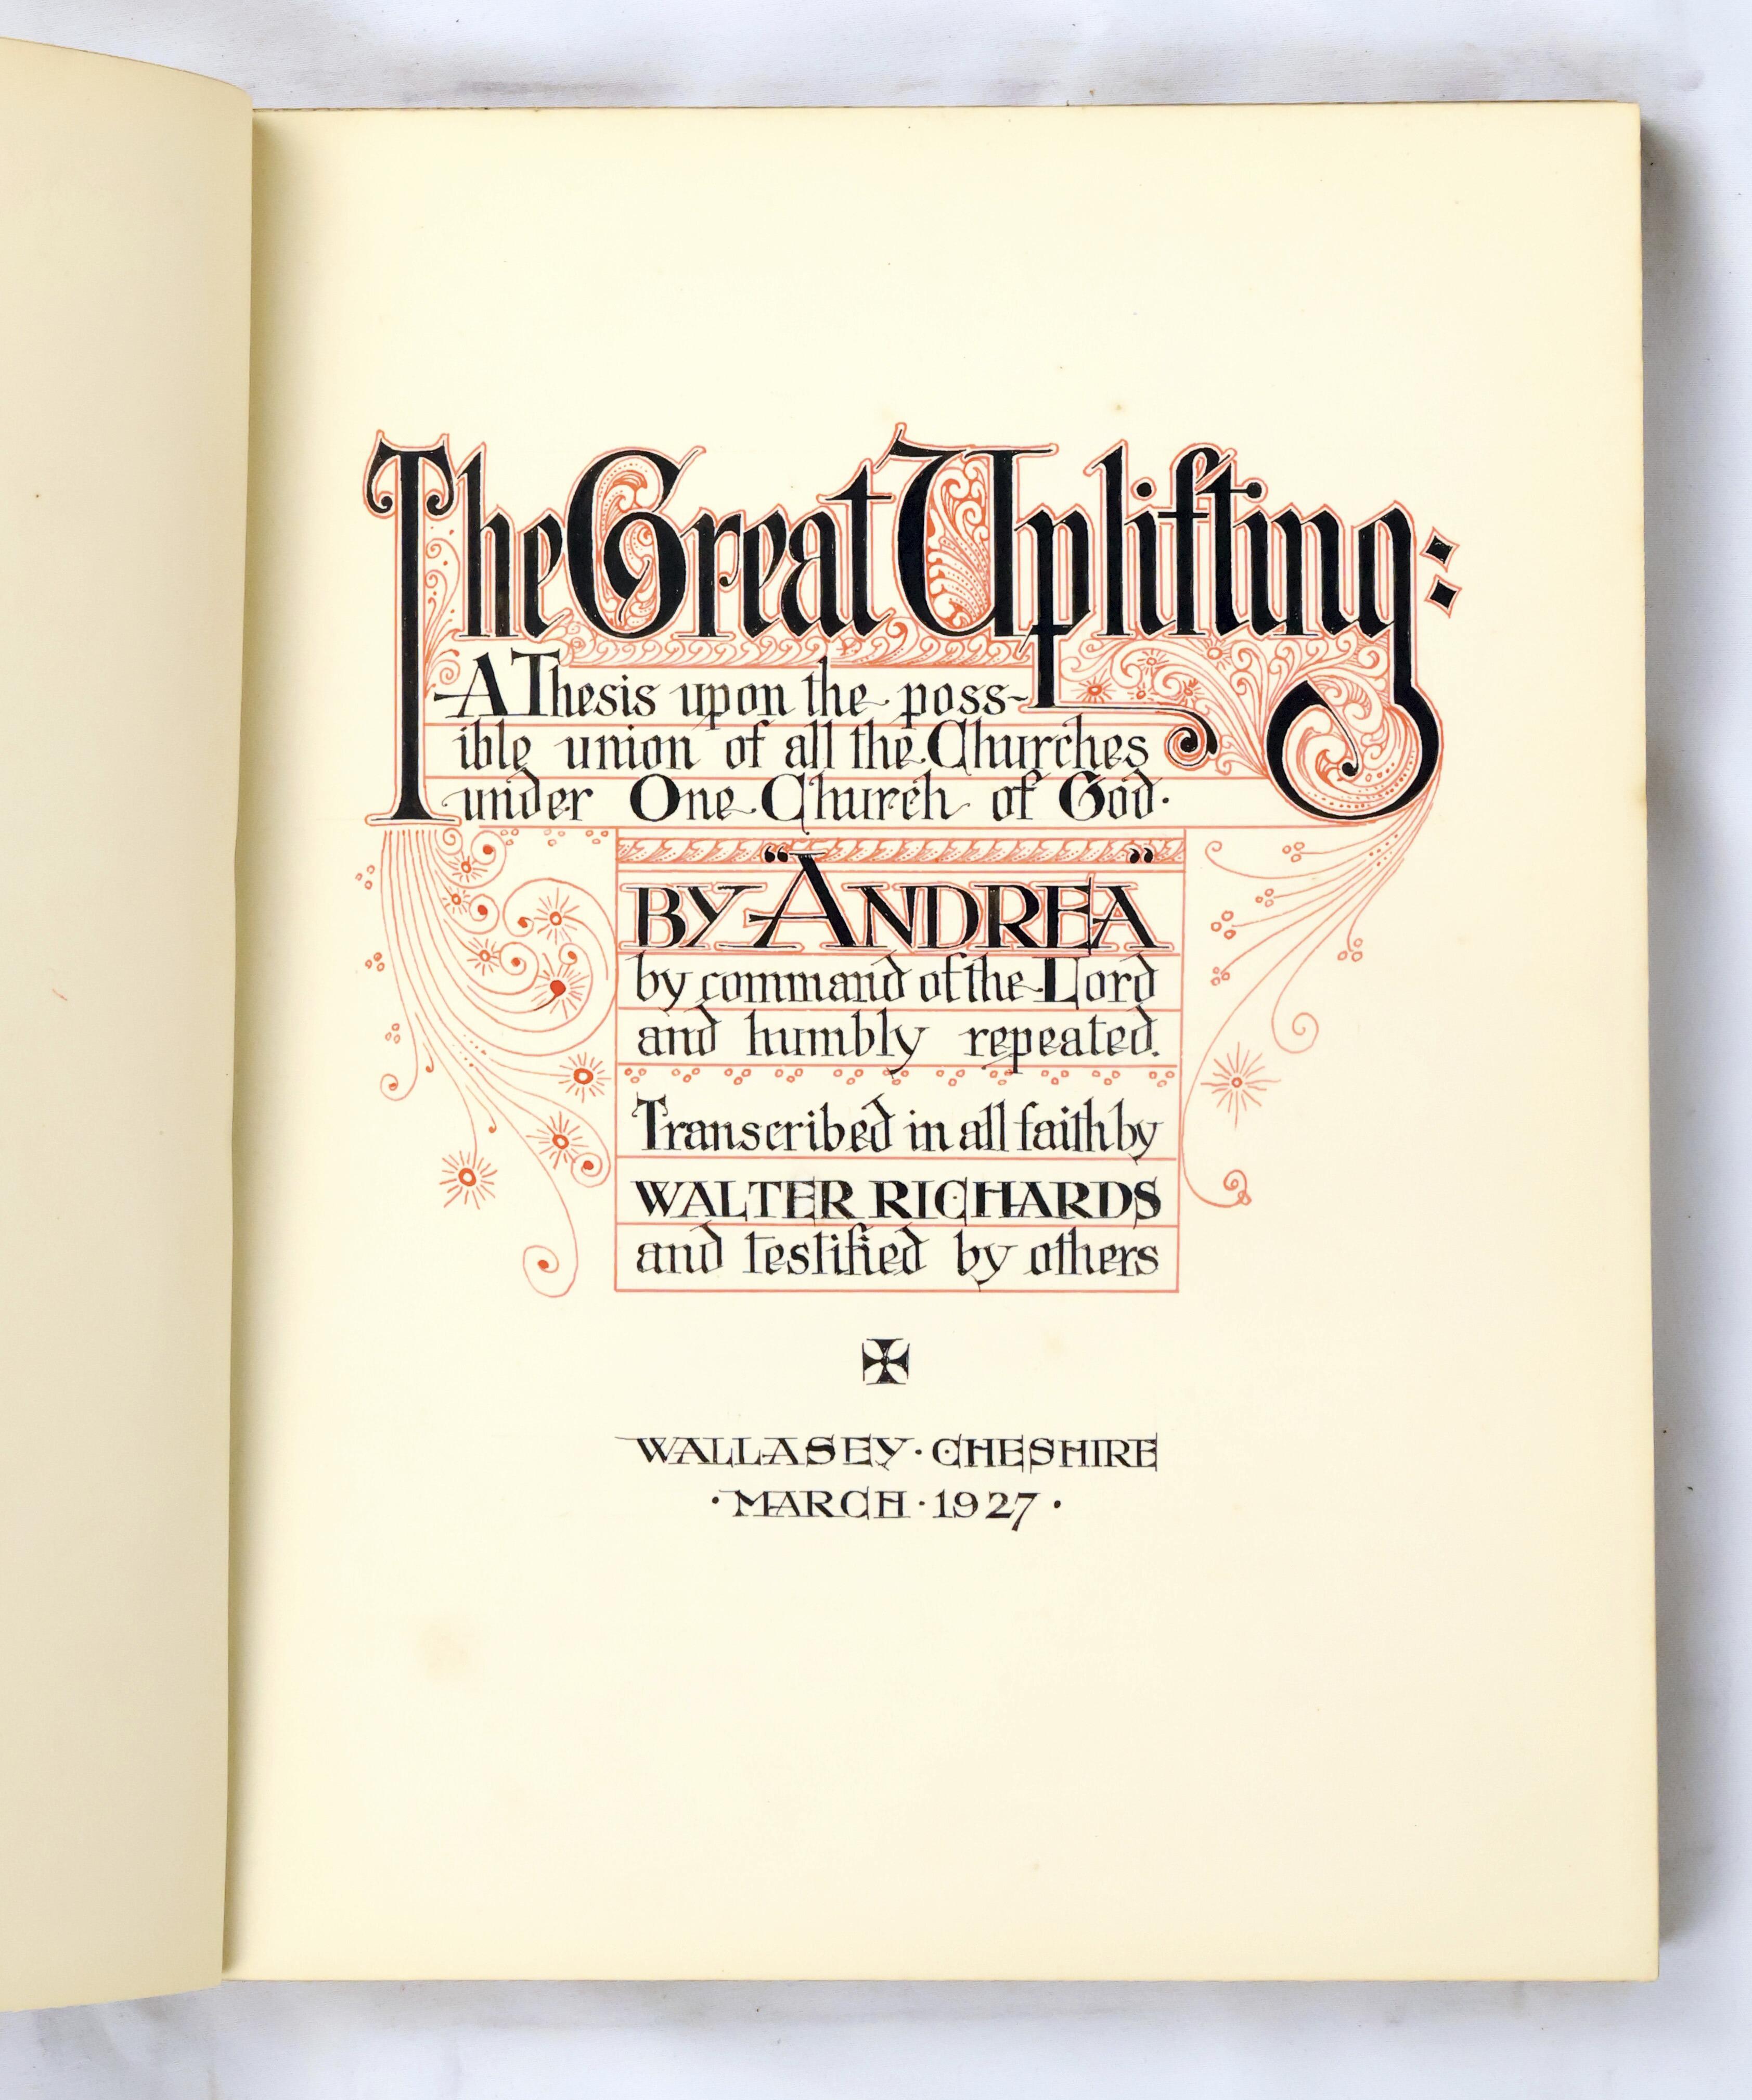 The Great Uplifting:
A Thesis upon the poss-
ible union of all the Churches
under One Church of God.
BY "ANDREA"
by command of the Lord
and humbly repeated.
Transcribed in all faith by
WALTER RICHARDS
and testified by others
WALLASEY · CHESHIRE
· MARCH · 1927 ·